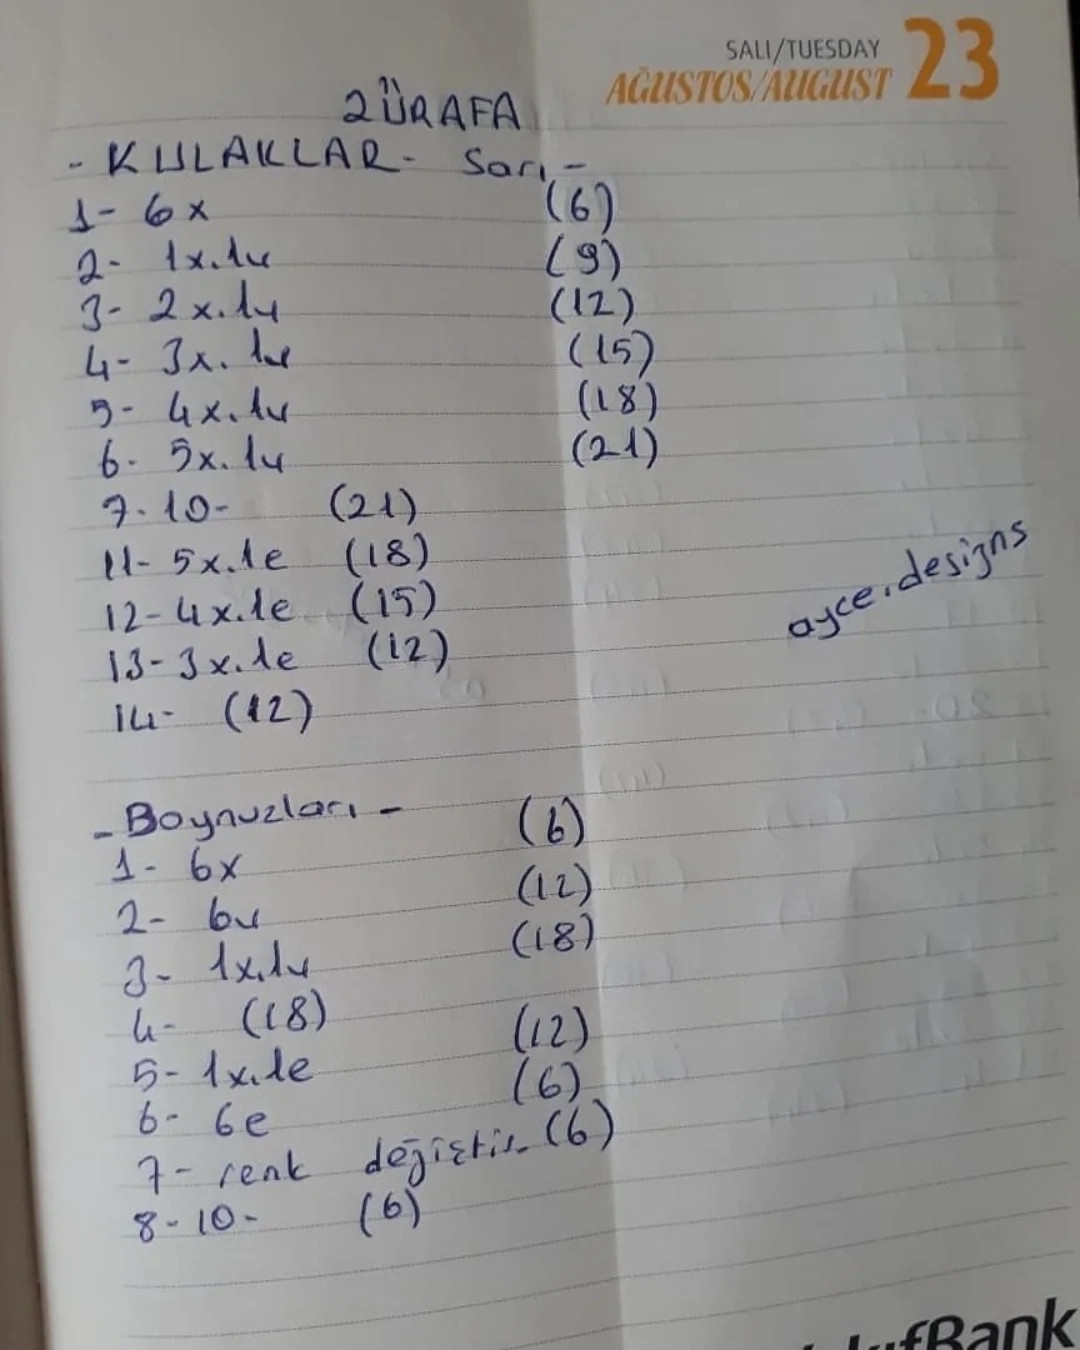 SALI/TUESDAY
AĞUSTOS/AUGUST 23
ZÜRAFA
- KULAKLAR - Sarı -
1- 6x (6)
2- 1x.1v (9)
3- 2x.1v (12)
4- 3x.1v (15)
5- 4x.1v (18)
6- 5x.1v (21)
7-10- (21)
11- 5x.1e (18)
12- 4x.1e (15)
13- 3x.1e (12)
14- (12)
ayce.designs
- Boynuzları -
1- 6x (6)
2- 6v (12)
3- 1x.1v (18)
4- (18)
5- 1x.1e (12)
6- 6e (6)
7- renk değiştir. (6)
8-10- (6)
kıfBank